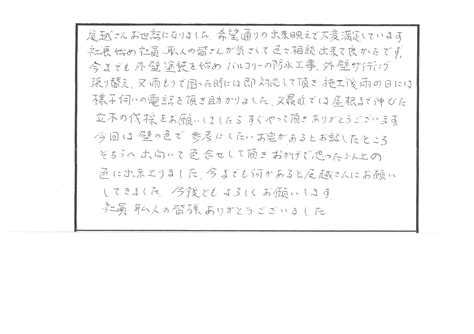 尾越さんお世話になりました。希望通りの出来映えで大変満足しています
社長始め社員、職人の皆さんが気さくで色々相談出来て良かったです。
今までも外壁塗装を始めバルコニーの防水工事、外壁サイディング
張り替え、又雨もりで困った時には即対応して頂き施工後雨の日には
様子伺いの電話を頂き助かりました。又最近では屋根まで伸びた
立木の伐採をお願いしましたらすぐやって頂きありがとうございます
今回は壁の色で参考にしたいお宅があるとお話したところ
そちらへ出向いて色合せして頂きおかげで思った以上の
色に出来上りました。今までも何かあると尾越さんにお願い
してきました。今後ともよろしくお願いします。
社員、職人の皆様ありがとうございました